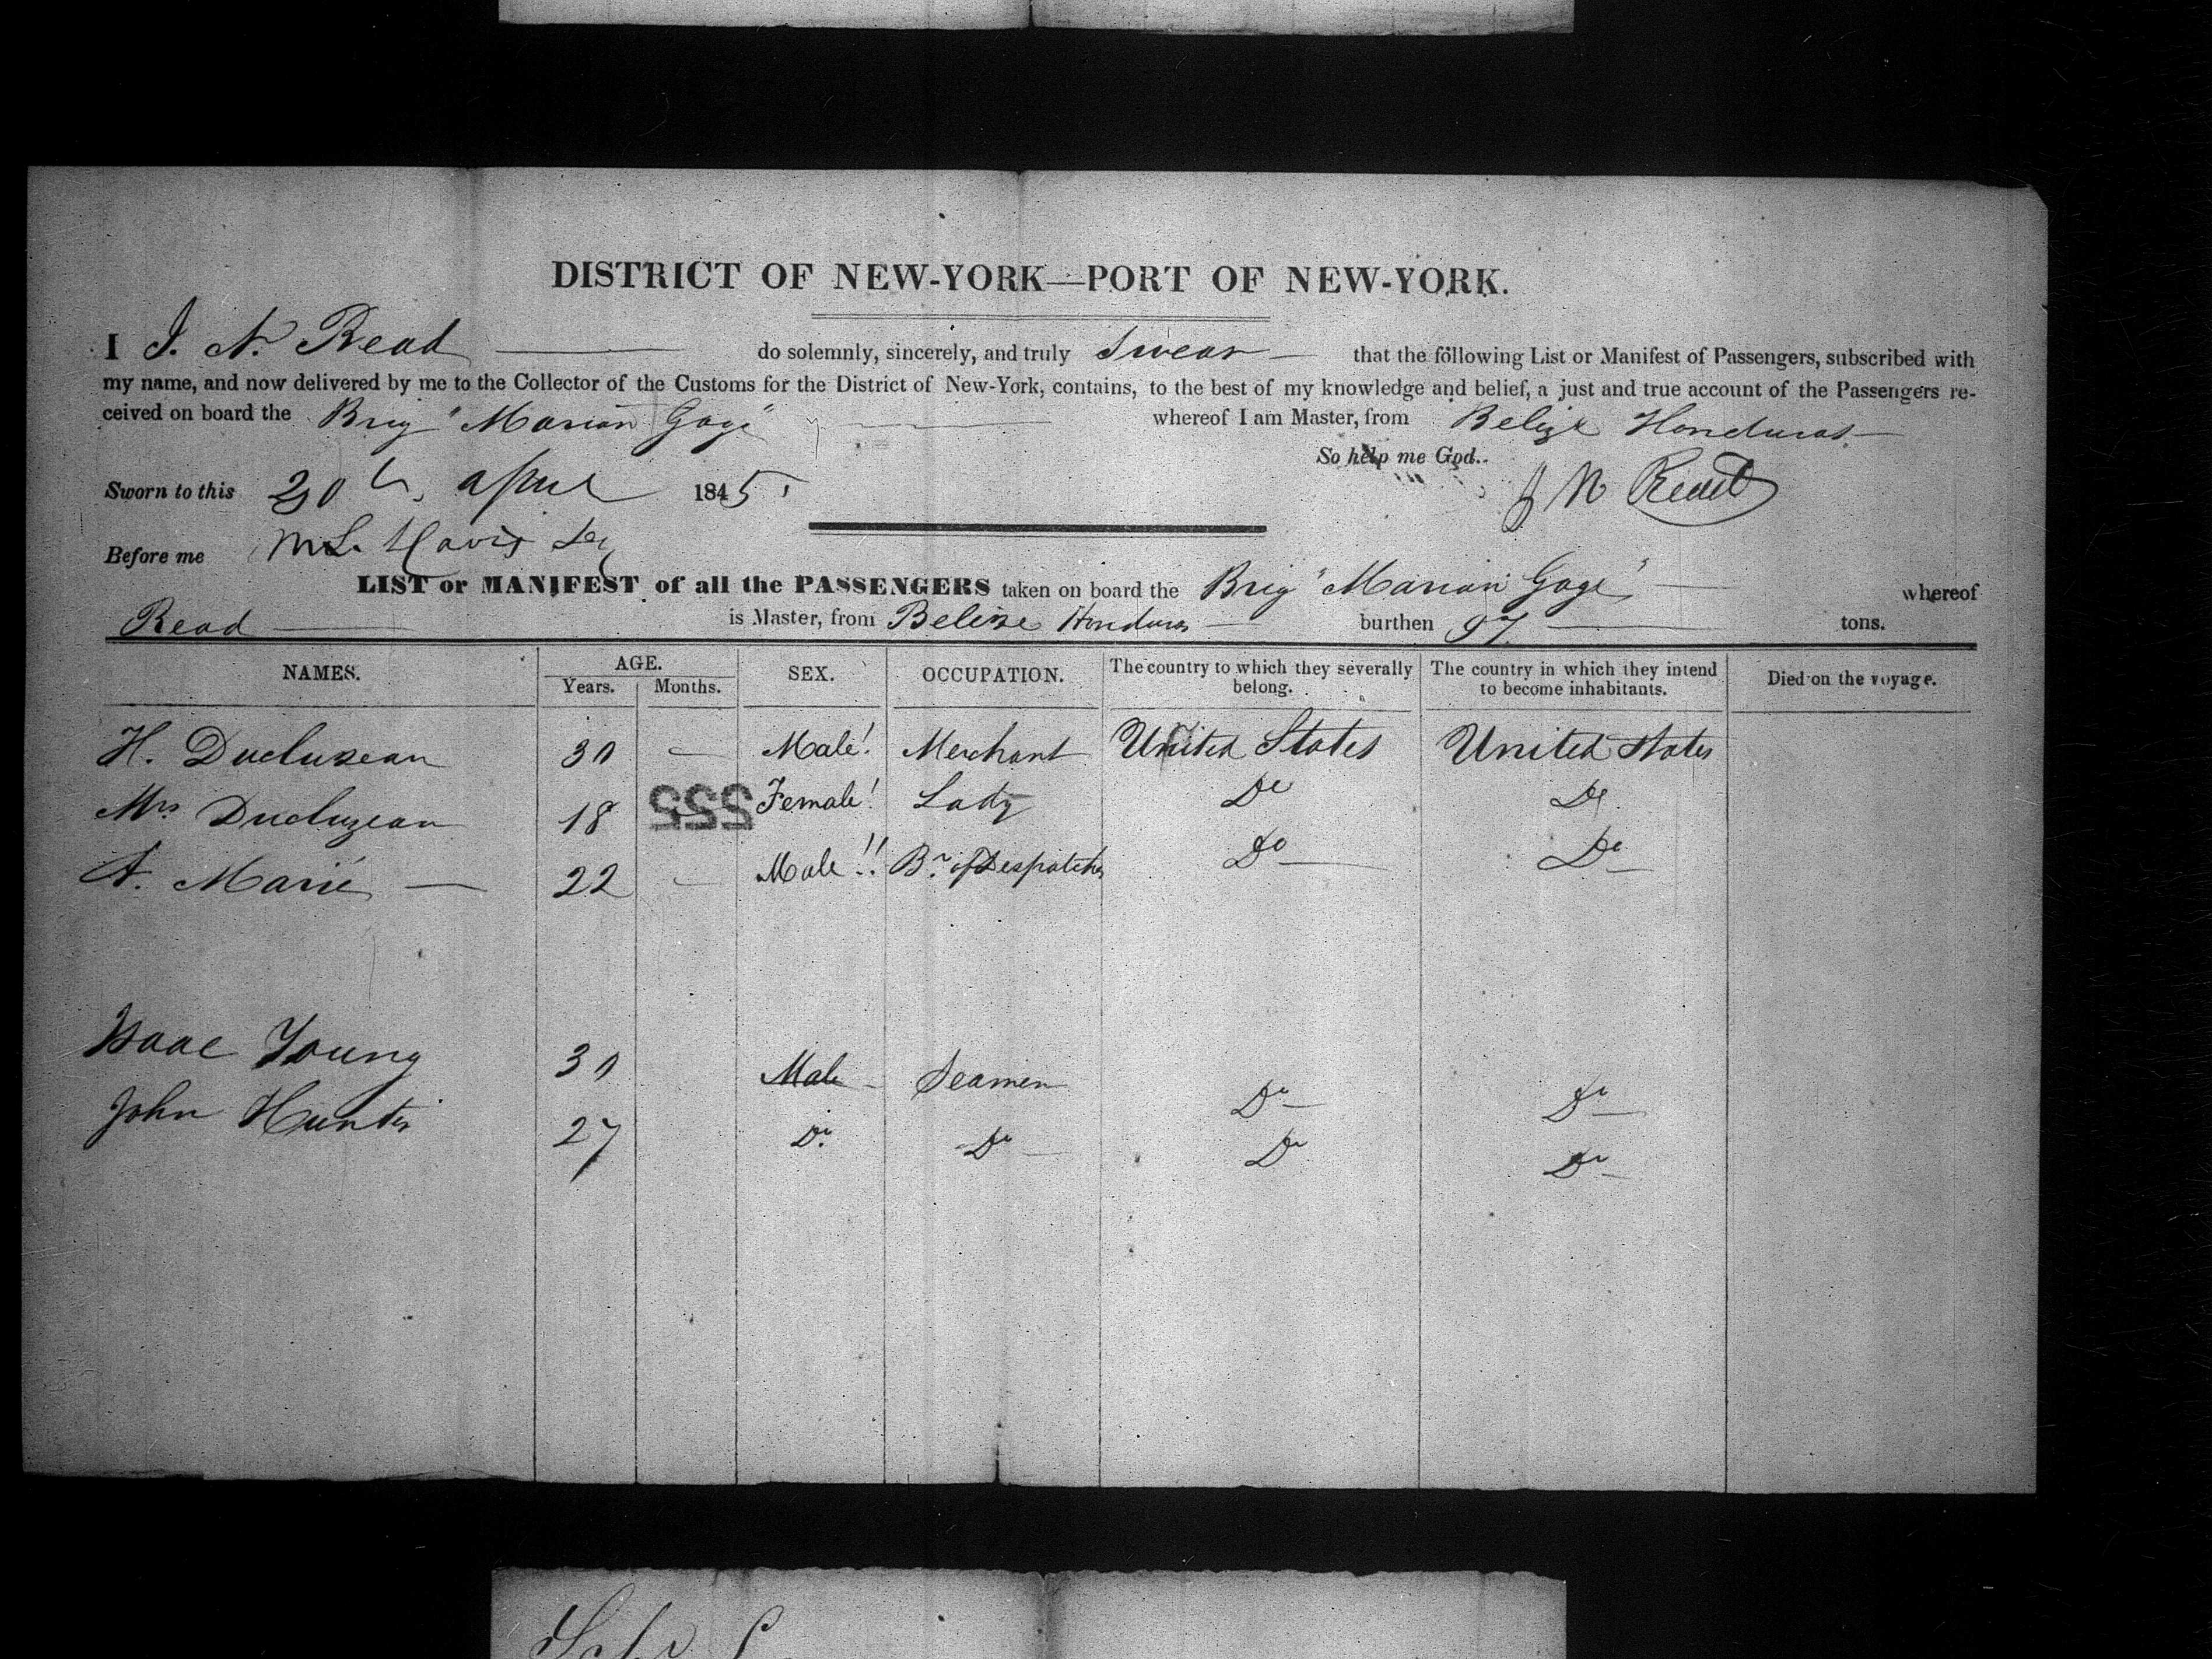 DISTRICT OF NEW-YORK—PORT OF NEW-YORK.
I J. N. Read do solemnly, sincerely, and truly Swear that the following List or Manifest of Passengers, subscribed with
my name, and now delivered by me to the Collector of the Customs for the District of New-York, contains, to the best of my knowledge and belief, a just and true account of the Passengers re-
ceived on board the Brig "Marian Gage" whereof I am Master, from Belize Honduras
So help me God.
Sworn to this 30th April 1845 J N Read
Before me
LIST or MANIFEST of all the PASSENGERS taken on board the Brig "Marian Gage" whereof
Read is Master, from Belize Honduras burthen 97 tons.
NAMES. AGE. SEX. OCCUPATION. The country to which they severally belong. The country in which they intend to become inhabitants. Died on the voyage.
Years. Months.
H. Ducluzeau 30 — Male Merchant United States United States
Mrs Ducluzeau 18 Female Lady Do Do
555
A. Marié — 22 — Male Br. of Despatches Do Do
Isaac Young 30 Male Seamen Do Do
John Hunter 27 Do Do Do Do